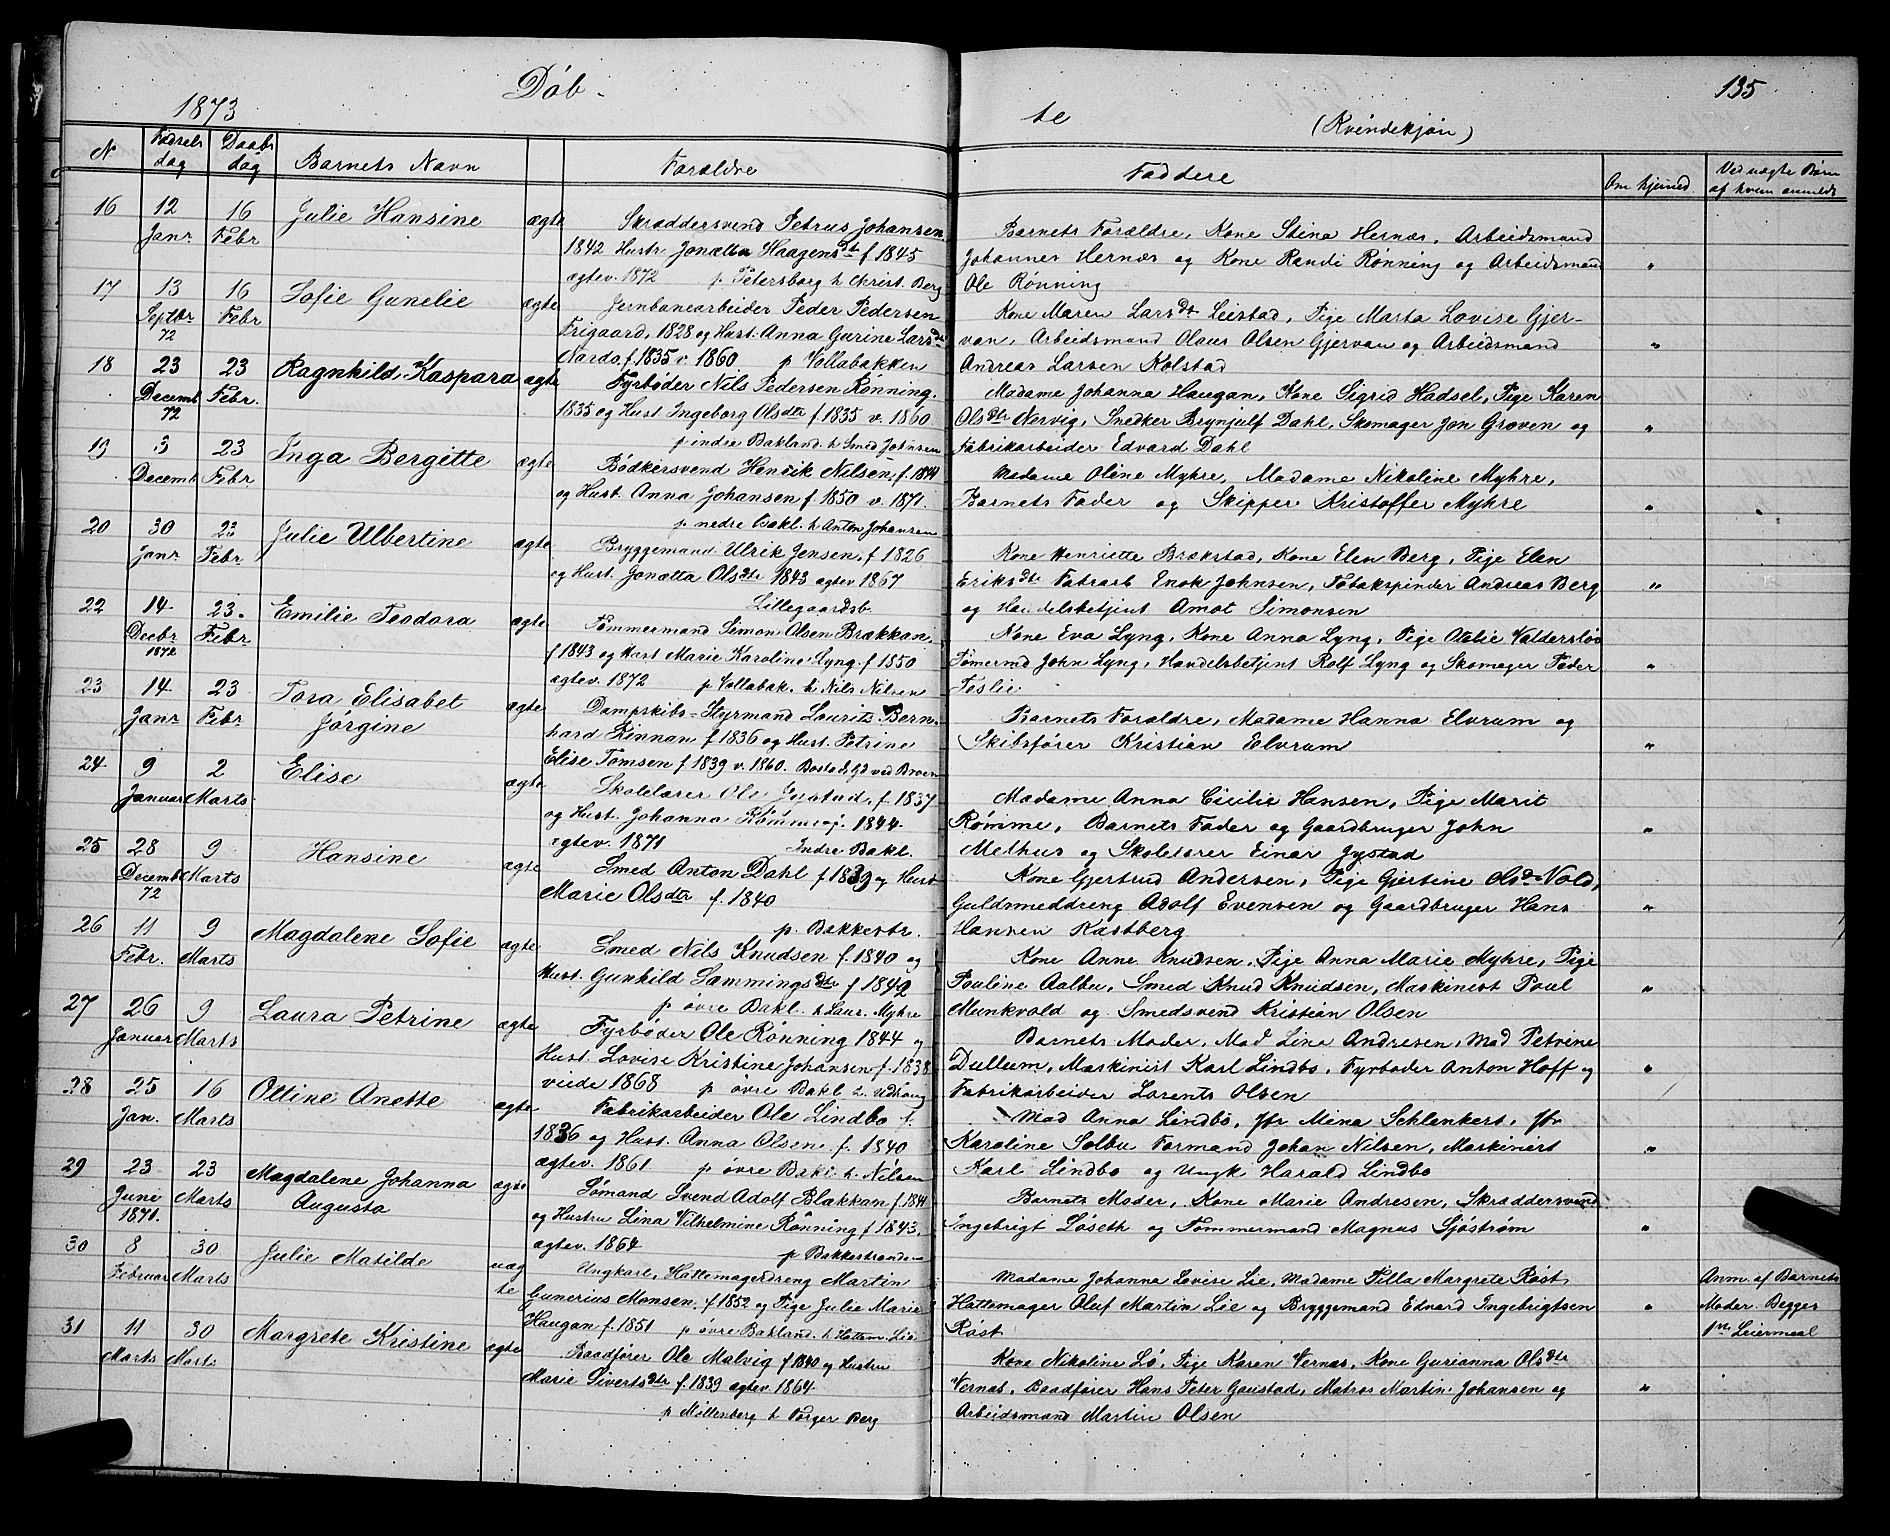 1873 Döb-
te (Kvindekjön) 135
N Fødsels dag Daabs dag Barnets Navn Forældre
Faddere Om hjemed. Ved uægte Børn af hvem anmeldt
16 12 Janr 16 Febr Julie Hansine ægte
Skræddersvend Petrus Johansen
1842 Hustr. Jonætta Haagensdt f 1845
ægtev. 1872 p. Petersborg h Christ. Berg
Barnets Forældre, Kone Stina Hernæs, Arbeidsmand
Johannes Hernæs og Kone Randi Rønning og Arbeidsmand "
Ole Rønning
17 13 Septbr 72 16 Febr Sofie Gunelie ægte
Jernbanearbeider Peder Pedersen
Frigaard, 1828 og Hust. Anna Gurine Larsdtr
Aardo, f. 1835 v. 1860 p Vollabakken
Kone Maren Larsdtr Leistad, Pige Marta Lovise Gjer-
van, Arbeidsmand Olaus Olsen Gjervan og Arbeidsmand "
Andreas Larsen Kolstad
18 23 Decemb 72 23 Febr. Ragnhild Kaspara ægte
Fyrbøder Nils Pedersen Rønning.
1835 og Hust. Ingeborg Olsdtr f 1835 v. 1860
p indre Bakland h Smed Johnsen
Madame Johanna Haugan, Kone Sigrid Hadsel, Pige Karen
Olsdtr Nervig, Snedker Brynjulf Dahl, Skomager Jon Groven og "
Fabrikarbeider Edvard Dahl
19 3 Decemb 23 Febr. Inga Bergitte ægte
Bødkersvend Henrik Nilsen, f. 1844
og Hust. Anna Johansen f 1850 v. 1871.
p nedre Bakl. h Anton Johansen
Madame Oline Myhre, Madame Nikoline Myhre,
Barnets Fader og Skipper Kristoffer Myhre "
20 30 Janr 23 Febr. Julie Ulbertine ægte
Bryggemand Ulrik Jensen, f 1826
og Hust. Jonætta Olsdtr 1843 ægtev 1867
Lillegaardsb.
Kone Henriette Brækstad, Kone Elen Berg, Pige Elen
Eriksdtr Fabrarb Enok Johnsen, Tobakspinder Andreas Berg "
og Handelsbetjent Amot Simonsen
22 14 Decbr 1872 23. Febr. Emilie Teodora ægte
Tømmermand Simon Olsen Brækkan,
f 1843 og Hust Marie Karoline Lyng f 1850
ægtev. 1872 p Vollabak. h Nils Nilsen
Kone Eva Lyng, Kone Anna Lyng, Pige Otelie Valdersløv
Tømermd John Lyng, Handelsbetjent Rolf Lyng og Skomager Peder "
Teslie
23 14 Janr 23 Febr Tora Elisabet Jörgine ægte
Dampskibs-Styrmand Laurits Bern-
hard Rinnan f 1836 og Hust. Petrine
Elise Tomsen f 1839 v. 1860. Bostad Gd ved Broen
Barnets Forældre, Madame Hanna Elvrum og
Skibsfører Kristian Elvrum "
24 9 Januar 2 Marts Elise ægte
Skolelærer Ole Jystad, f. 1837
og Hust. Johanna Rømme, f. 1844.
ægtev. 1871 Indre Bakl.
Madame Anna Cicilie Hansen, Pige Marit
Rømme, Barnets Fader og Gaardbruger John "
Melhus og Skolelærer Einar Jystad
25 28 Decemb 72 9 Marts Hansine ægte
Smed Anton Dahl f 1839 og Hust
Marie Olsdtr f. 1840
p. Bakkestr.
Kone Gjertrud Andersen, Pige Gjertine Olsdtr Vold,
Guldsmeddreng Adolf Evensen og Gaardbruger Hans "
Hansen Kastberg
26 11 Febr. 9 Marts Magdalene Sofie ægte
Smed Nils Knudsen f. 1840 og
Hust. Gunhild Sammingsdtr f 1842
p øvre Bakl. h Laur. Myhre
Kone Anne Knudsen, Pige Anna Marie Myhre, Pige
Pouline Aalbu, Smed Knud Knudsen, Maskinist Poul "
Munkvold og Smedsvend Kristian Olsen
27 26 Januar 9 Marts Laura Petrine ægte
Fyrbøder Ole Rønning 1844 og
Hust. Lovise Kristine Johansen f. 1838
viede 1868 p øvre Bakl h. Udhaug
Barnets Moder, Mad Lina Andresen, Mad Petrine
Dullum, Maskinist Karl Lindbo, Fyrbøder Anton Hoff og "
Fabrikarbeider Lorents Olsen
28 25 Jan. 16 Marts Ottine Anette ægte
Fabrikarbeider Ole Lindbo f.
1836 og Hust. Anna Olsen f. 1840
ægtev. 1861 p øvre Bakl h. Nilsen
Mad Anna Lindbo, Jfr Mina Schlankert, Jfr
Karoline Solbu Formand Johan Nilsen, Maskinist "
Karl Lindbo og Ungk. Harald Lindbo
29 23 Juni 1871. 23 Marts Magdalene Johanna Augusta ægte
Sømand Svend Adolf Blakkan f. 1841
og Hustru Lina Vilhelmine Rønning f 1843.
ægtev. 1864 p Bakkestranden
Barnets Moder, Kone Marie Andresen, Skræddersvend
Ingebrigt Løseth og Tømmermand Magnus Sjöström "
30 8 Februar 30 Marts Julie Matilde uæg te
Ungkarl, Hattemagerdreng Martin
Gunerius Monsen, f. 1852 og Pige Julie Marie
Haugan f. 1851 p øvre Bakland h Hattem. Lie
Madame Johanna Lovise Lie, Madame Pilla Margrete Röst
Hattemager Oluf Martin Lie og Bryggemand Edvard Ingebrigtsen "
Röst
Anm. af Barnets
Moder. Begges
1ste Leiermaal
31 11 Marts 30 Marts Margrete Kristine ægte
Baadfører Ole Malvig f 1840 og Hustru
Marie Sivertsdtr f. 1839 ægtev 1864.
p Møllenberg h Torger Berg
Kone Nikoline Lö, Pige Karen Vernæs, Kone Gurianna Olsdtr
Vernæs, Baadfører Hans Peter Gaustad, Matros Martin Johansen og "
Arbeidsmand Martin Olsen